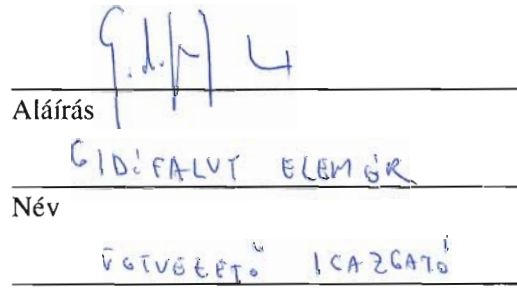 Aláírás
GIDÓFALVY ELEMÉR
Név
ÜGYVEZETŐ IGAZGATÓ